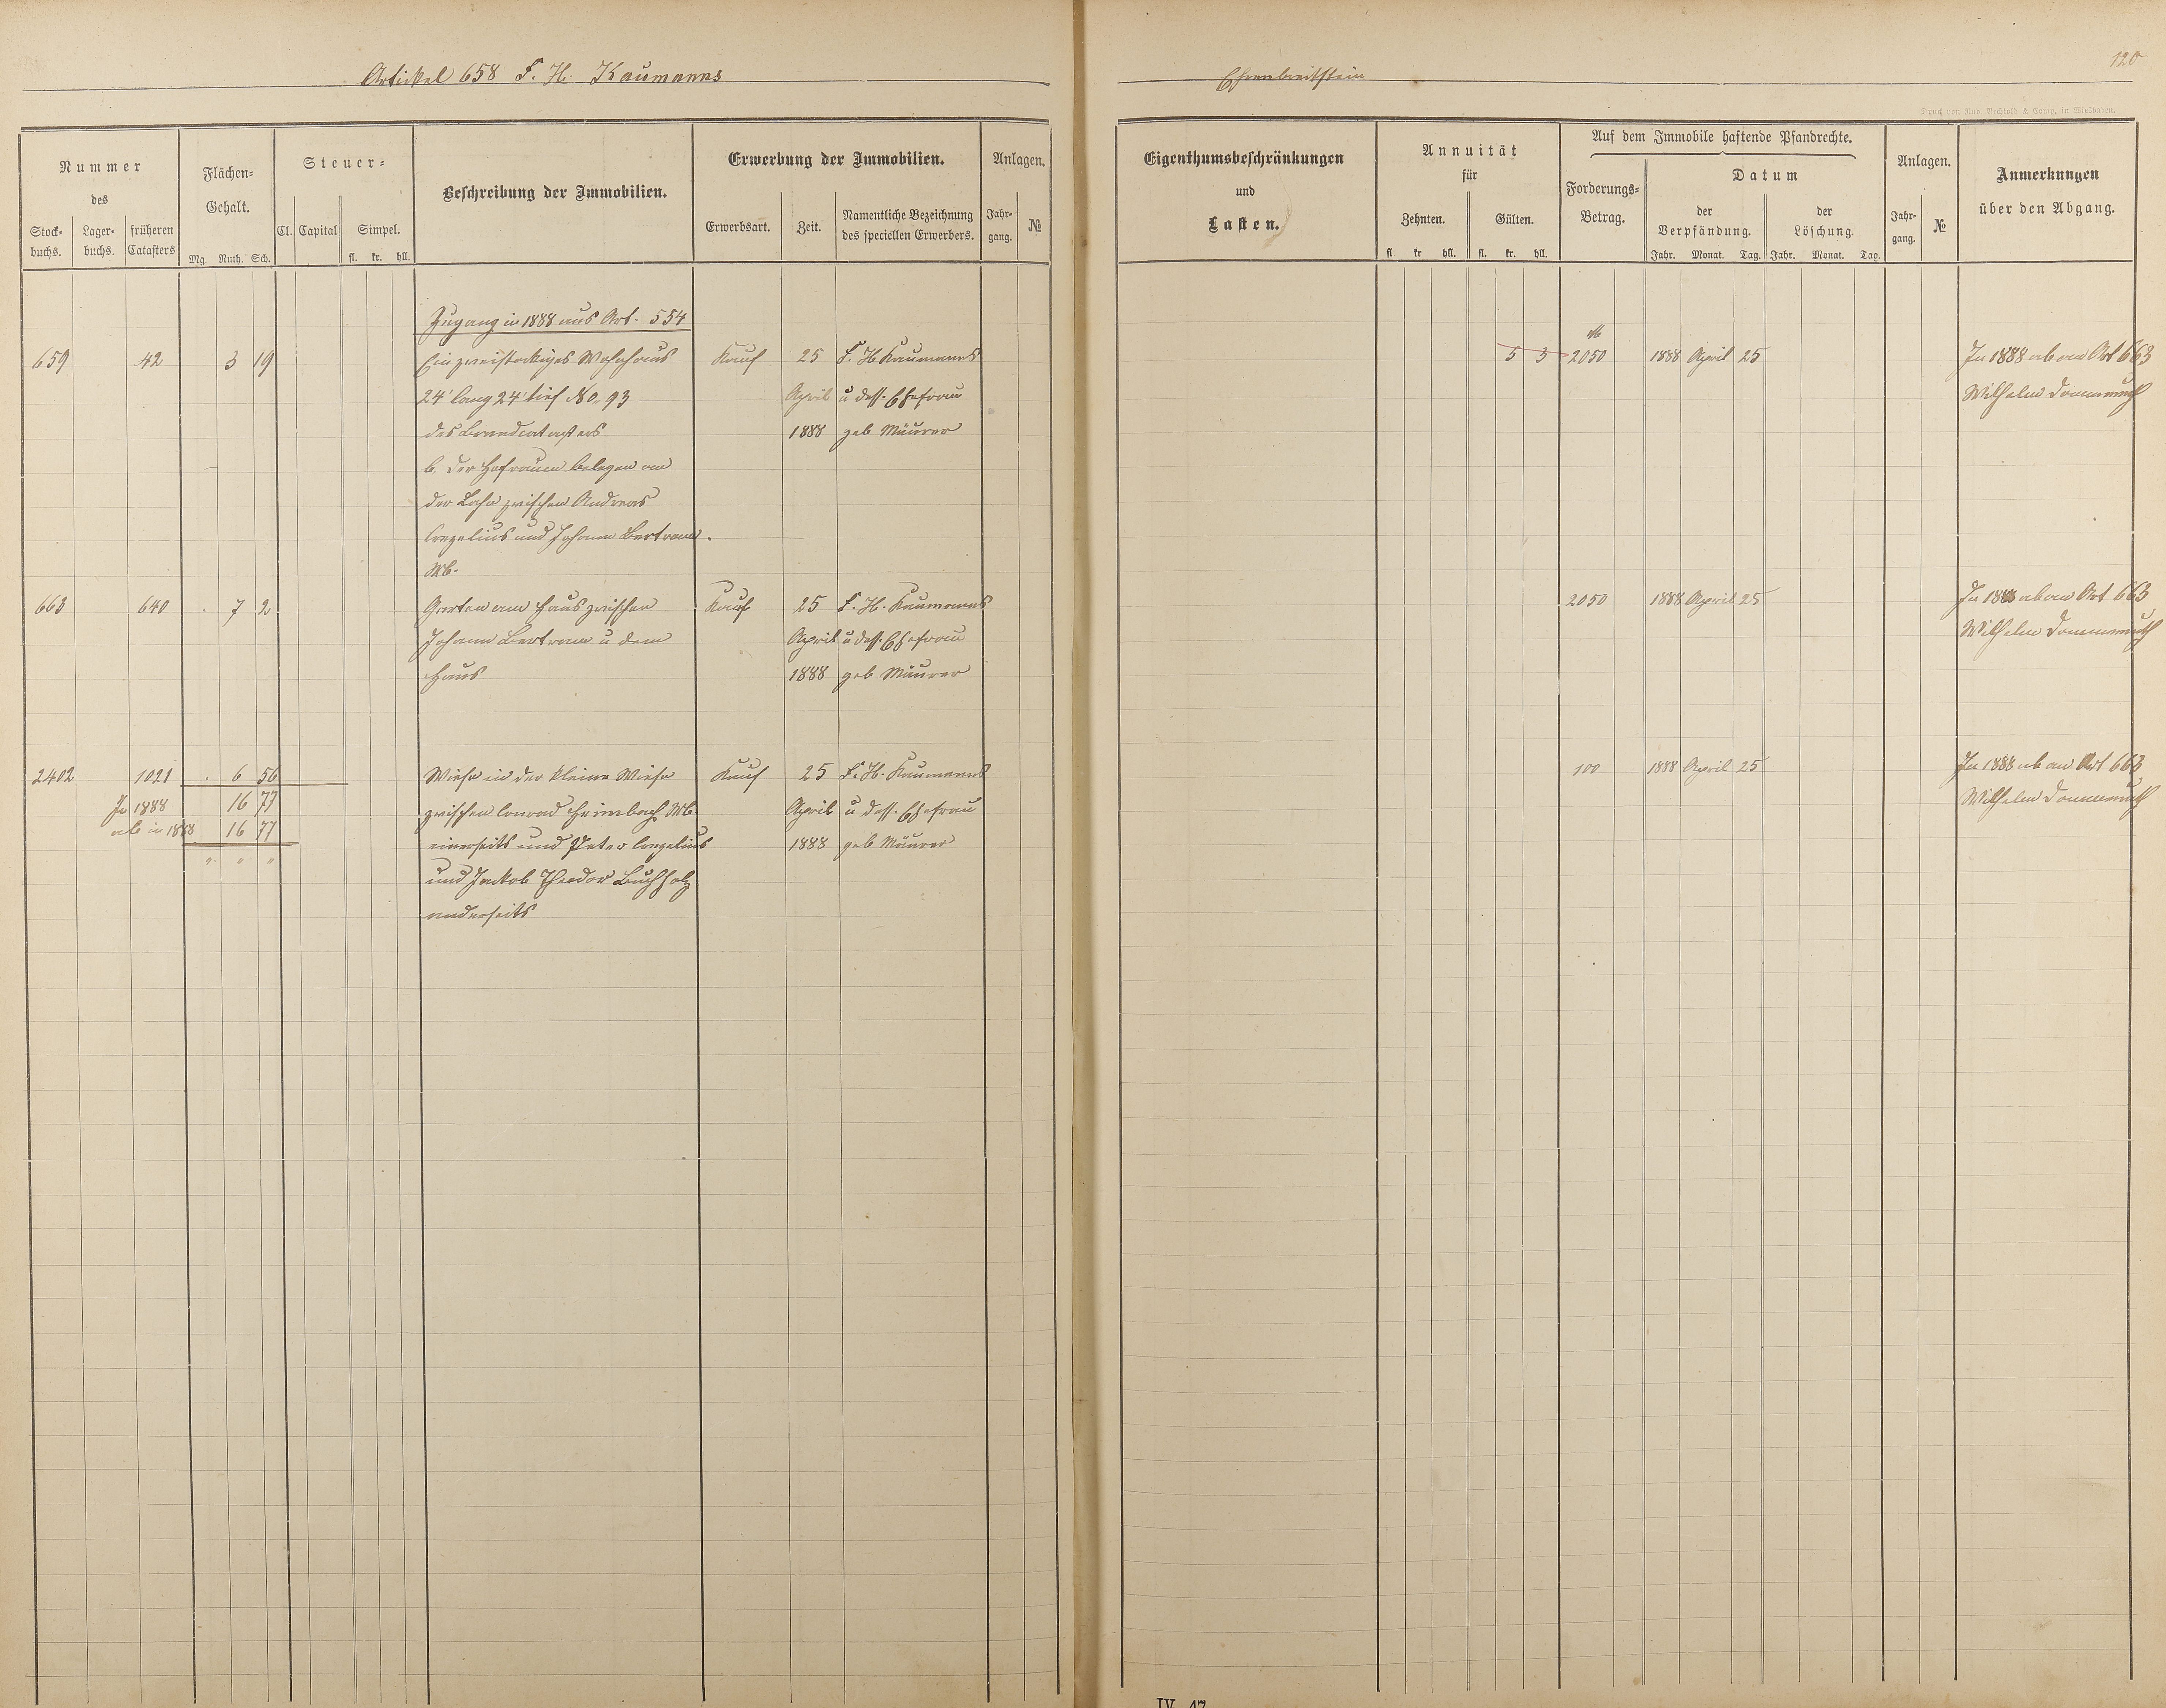 Artickel 658 F. H. Kaumanns
Ehrenbreitstein
120
Druck von Rud. Bechtold & Comp. in Wiesbaden.
Nummer
des
Stock-
buchs.
Lager-
buchs.
früheren
Catasters
Flächen-
Gehalt.
Mg. Ruth. Sch.
Steuer-
Cl. Capital Simpel.
fl. kr. hll.
Beschreibung der Immobilien.
Erwerbung der Immobilien.
Erwerbsart. Zeit.
Namentliche Bezeichnung
des speciellen Erwerbers.
Anlagen.
Jahr-
gang.
№
Eigenthumsbeschränkungen
und
Lasten.
Annuität
für
Zehnten. Gülten.
fl kr hll. fl. kr. hll.
Auf dem Immobile haftende Pfandrechte.
Forderungs-
Betrag.
Datum
der
Verpfändung.
der
Löschung.
Jahr. Monat. Tag. Jahr. Monat. Tag.
Anlagen.
Jahr-
gang.
№
Anmerkungen
über den Abgang.
Zugang in 1888 aus Art. 554
659 42 3 19 Ein zweistockiges Wohnhaus Kauf 25 F. H. Kaumanns 5 3 2050 1888 April 25 In 1888 ab an Art 663
24' lang 24' tief No. 93 April u dess. Ehefrau Wilhelm Dommermuth
des Brandcatasters 1888 geb Mäurer
b. der Hofraum belegen an
der Lahn zwischen Andreas
Crezelius und Johann Bertram.
Mb.
663 640 . 7 2 Garten am Haus zwischen Kauf 25 F. H. Kaumanns 2050 1888 April 25 In 1888 ab an Art 663
Johann Bertram u dem April u dess. Ehefrau Wilhelm Dommermuth
Haus 1888 geb Mäurer
2402 1021 . 6 56 Wiese in der kleine Wiese Kauf 25 F. H. Kaumanns 100 1888 April 25 In 1888 ab an Art 663
In 1888 16 77 zwischen Conrad Heimbach Mb April u dess. Ehefrau Wilhelm Dommermuth
ab in 1888 16 77 einerseits und Peter Crezelius 1888 geb Mäurer
" " " und Jackob Theodor Buchholz
anderseits
IV. 47